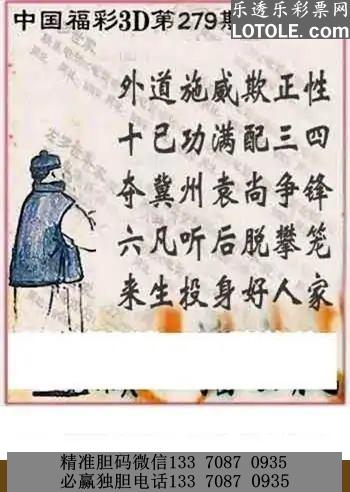 中国福彩3D第279期
乐透乐彩票网
LOTOLE.COM
外道施威欺正性
十已功满配三四
夺冀州袁尚争锋
六凡听后脱攀笼
来生投身好人家
精准胆码微信133 7087 0935
必赢独胆电话133 7087 0935